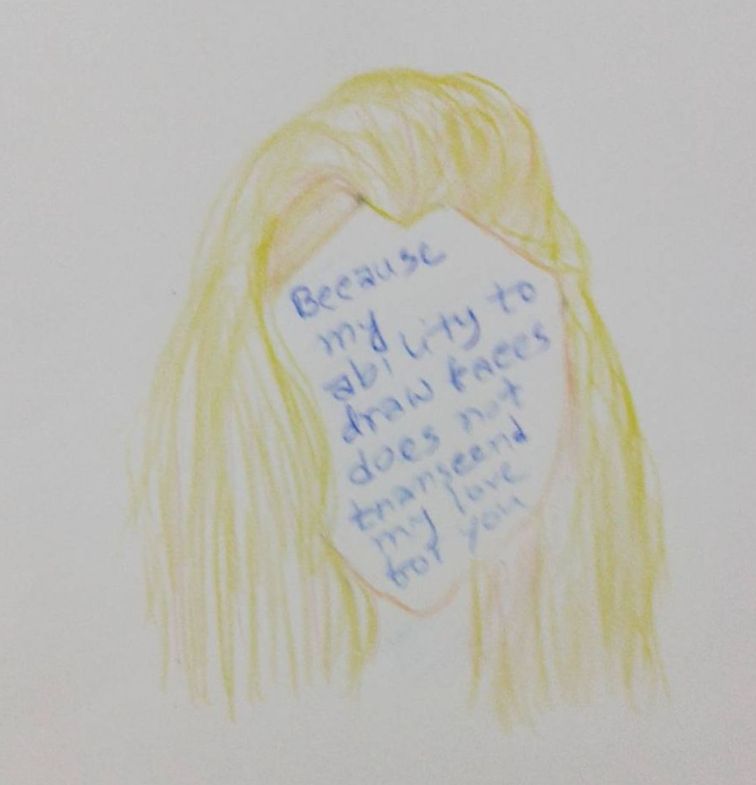 Because
my
ability to
draw faces
does not
transcend
my love
for you